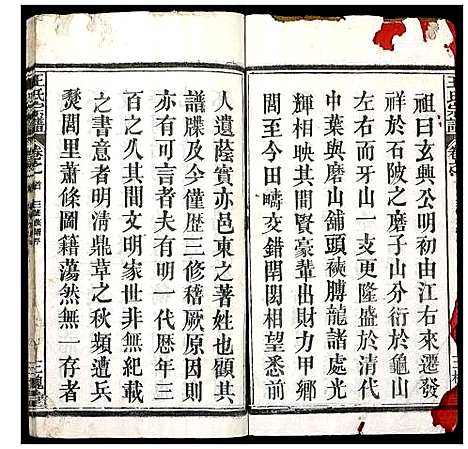 祖曰玄興公明初由江右來遷發
祥於石陂之磨子山分衍於龜山
左右而牙山一支更隆盛於清代
中葉與磨山舖頭袂膊龍諸處光
輝相映其間賢豪輩出財力甲鄉
至今田疇交錯閈閎相望悉前
人遺蔭實亦邑東之著姓也顧其
譜牒及今僅歴三修稽厥原因則
亦有可言者夫有明一代歴年三
百之久其間文明家世非無紀載
之書意者明清鼎革之秋頻遭兵
燹閭里蕭條圖籍蕩然無一存者
王氏宗譜
卷之一
三槐堂